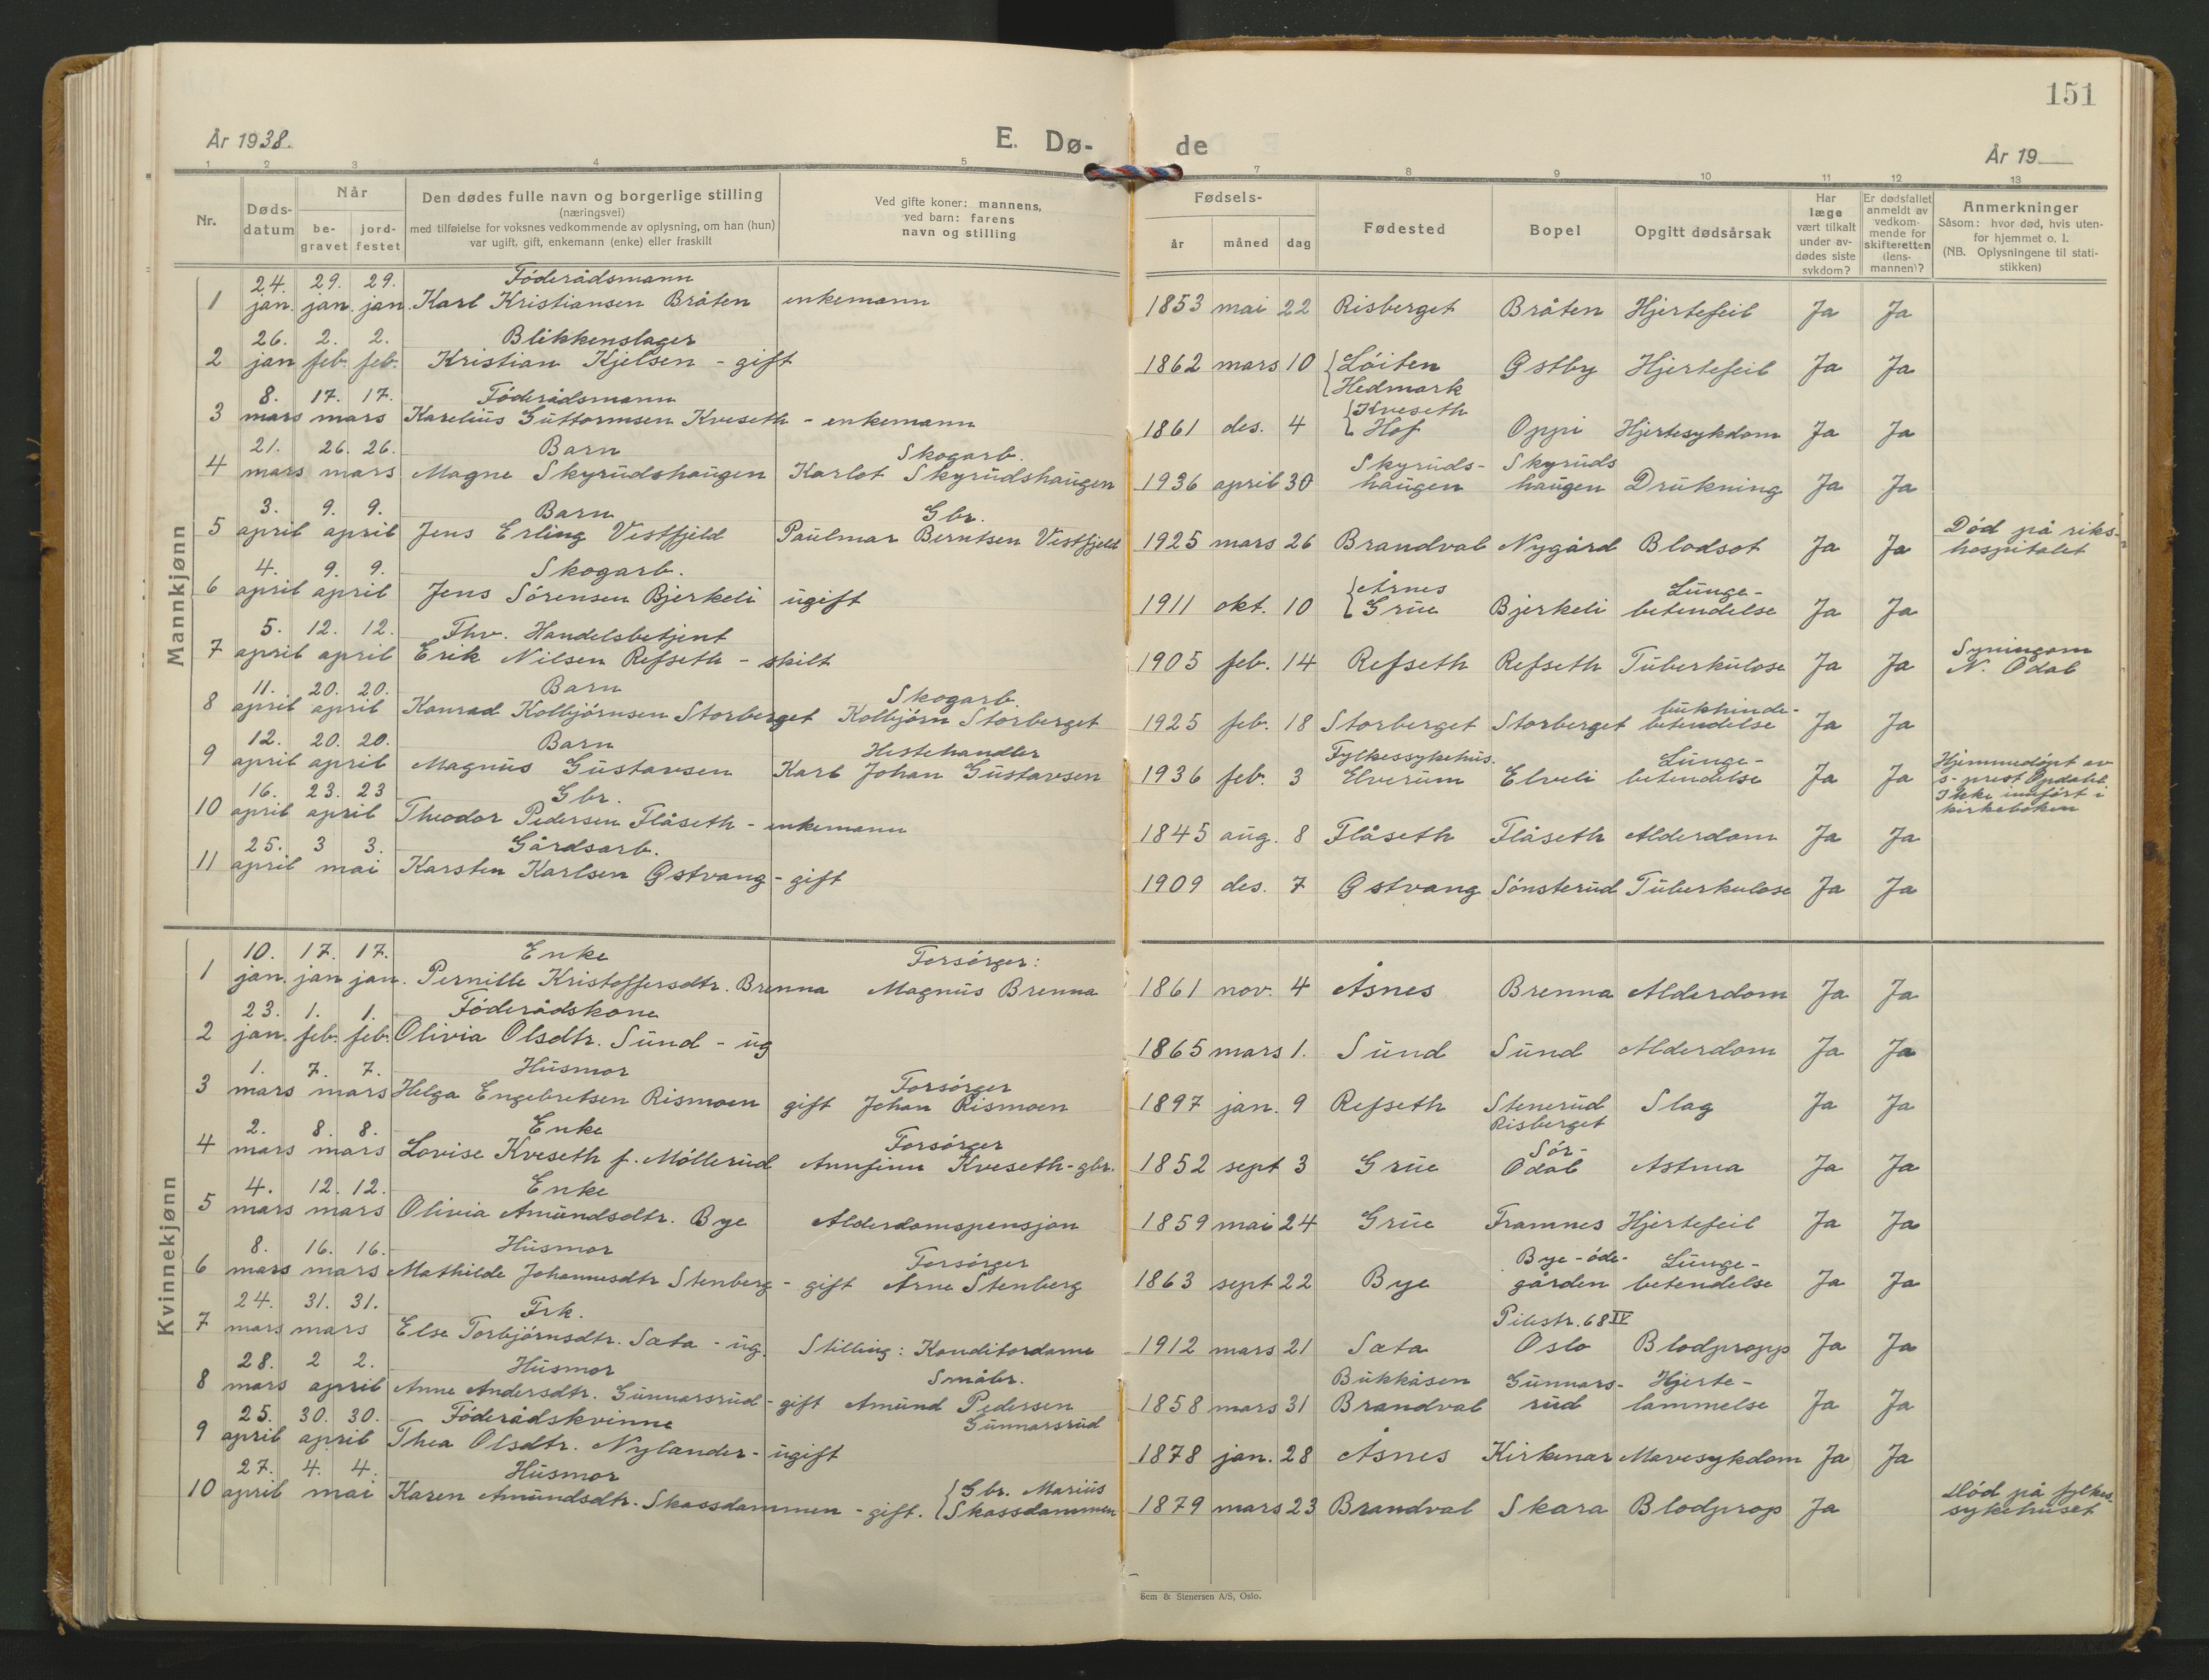 151
År 1938.
E. Dø-
de
År 19
1 2 3 4 5 7 8 9 10 11 12 13
Nr.
Døds-
datum
Når
be-
gravet
jord-
festet
Den dødes fulle navn og borgerlige stilling
(næringsvei)
med tilføielse for voksnes vedkommende av oplysning, om han (hun)
var ugift, gift, enkemann (enke) eller fraskilt
Ved gifte koner: mannens,
ved barn: farens
navn og stilling
Fødsels-
år måned dag
Fødested
Bopel
Opgitt dødsårsak
Har
læge
vært tilkalt
under av-
dødes siste
sykdom?
Er dødsfallet
anmeldt av
vedkom-
mende for
skifteretten
(lens-
mannen)?
Anmerkninger
Såsom: hvor død, hvis uten-
for hjemmet o. l.
(NB. Oplysningene til stati-
stikken)
Mannkjønn
24. 29. 29. Föderådsmann
1 jan. jan. jan. Karl Kristiansen Bråten enkemann 1853 mai 22 Risberget Bråten Hjertefeil Ja Ja
26. 2. 2. Blikkenslager
2 jan feb. feb. Kristian Kjelsen - gift 1862 mars 10 Löiten Østby Hjertefeil Ja Ja
Hedmark
8. 17. 17. Föderådsmann Kveseth
3 mars mars Karelius Guttormsen Kveseth - enkemann 1861 des. 4 Hof Oppi Hjertesykdom Ja Ja
21. 26. 26. Barn Skogarb. Skyruds- Skyruds
4 mars mars Magne Skyrudshaugen Karlot Skyrudshaugen 1936 april 30 haugen haugen Drukning Ja Ja
3. 9. 9. Barn Gbr. Död på riks-
5 april april Jens Erling Vestfjeld Paulmar Berntsen Vestfjeld 1925 mars 26 Brandval Nygård Blodsot Ja Ja hospitalet
4. 9. 9. Skogarb. Årnes Lunge-
6 april april Jens Sörensen Bjerkeli ugift 1911 okt. 10 Grue Bjerkeli betendelse Ja Ja
5. 12. 12. Fhv. Handelsbetjent
7 april april Erik Nilsen Refseth - skilt 1905 feb. 14 Refseth Refseth Tuberkulose Ja Ja N. Odal
11. 20. 20. Barn Skogarb. bukhinde-
8 april april Konrad Kolbjörnsen Storberget Kolbjörn Storberget 1925 feb. 18 Storberget Storberget betendelse Ja Ja
12. 20. 20. Barn Hestehandler Fylkessykehus. Lunge- Hjemmedöpt av
9 april april Magnus Gustavsen Karl Johan Gustavsen 1936 feb. 3 Elverum Elveli betendelse Ja Ja s-prest Opdahl.
Ikke innfört i
kirkeboken
16. 23. 23 Gbr.
10 april april Theodor Pedersen Flåseth - enkemann 1845 aug. 8 Flåseth Flåseth Alderdom Ja Ja
25. 3 3. Gårdsarb.
11 april mai Karsten Karlsen Østvang - gift 1909 des. 7 Østvang Sönsterud Tuberkulose Ja Ja
Kvinnekjønn
10. 17. 17. Enke Forsörger:
1 jan. jan jan. Pernille Kristoffersdtr. Brenna Magnus Brenna 1861 nov. 4 Åsnes Brenna Alderdom Ja Ja
23. 1. 1. Föderådskone
2 jan. feb. feb. Olivia Olsdtr. Sund - ug 1865 mars 1. Sund Sund Alderdom Ja Ja
1. 7. 7. Husmor Forsörger
3 mars mars Helga Engebretsen Rismoen gift Johan Rismoen 1897 jan. 9 Refseth Stenerud Slag Ja Ja
Risberget
2. 8. 8. Enke Forsörger Sör-
4 mars mars Lovise Kveseth f. Möllerud Annfinn Kveseth - gbr. 1852 sept 3 Grue Odal Astma Ja Ja
4. 12. 12. Enke
5 mars mars Olivia Amundsdtr. Bye Alderdomspensjon 1859 mai 24 Grue Framnes Hjertefeil Ja Ja
8. 16. 16. Husmor Forsörger Bye-öde- Lunge-
6 mars mars Mathilde Johannesdtr Stenberg - gift Arne Stenberg 1863 sept 22 Bye gården betendelse Ja Ja
24. 31. 31. Frk. Pilestr. 68 IV
7 mars mars Else Torbjörnsdtr. Sæta - ug. Stilling: Konditordame 1912 mars 21 Sæta Oslo Blodpropp Ja Ja
28. 2 2. Husmor Småbr. Bukkåsen Gunnars- Hjerte-
8 mars april Anne Andersdtr. Gunnarsrud - gift Amund Pedersen 1858 mars 31 Brandval rud lammelse Ja Ja
Gunnarsrud
25. 30. 30. Föderådskvinne
9 april april Thea Olsdtr. Nylander - ugift 1878 jan. 28 Åsnes Kirkenær Mavesykdom Ja Ja
27. 4. 4. Husmor Gbr. Marius Död på fylkes-
10 april mai Karen Amundsdtr. Skassdammen - gift. Skassdammen 1879 mars 23 Brandval Skara Blodprop Ja sykehuset
Sem & Stenersen A/S, Oslo.